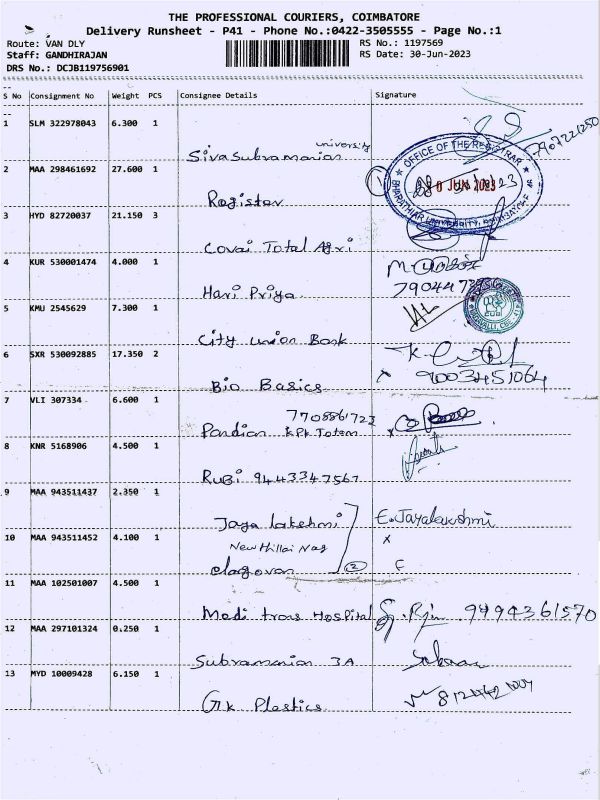 THE PROFESSIONAL COURIERS, COIMBATORE
Delivery Runsheet - P41 - Phone No.:0422-3505555 - Page No.:1
Route: VAN DLY RS No.: 1197569
Staff: GANDHIRAJAN RS Date: 30-Jun-2023
DRS No.: DCJB119756901
S No Consignment No Weight PCS Consignee Details Signature
1 SLM 322978043 6.300 1
university
Sivasubramanian
OFFICE OF THE REGISTRAR
BHARATHIAR UNIVERSITY
2 MAA 298461692 27.600 1
Register
3 HYD 82720037 21.150 3
Covai Total Agri
4 KUR 530001474 4.000 1
Hari Priya
5 KMU 2545629 7.300 1
City union Bank
6 SXR 530092885 17.350 2
Bio Basics x 9003451064
7 VLI 307334 6.600 1
7708861723
Pandian KPK Totem x
8 KNR 5168906 4.500 1
RUBi 9443347567
9 MAA 943511437 2.350 1
Jaya lakshmi E. Jayalakshmi
10 MAA 943511452 4.100 1 x
elagovan 2
11 MAA 102501007 4.500 1
Medi trans Hospital 9494361570
12 MAA 297101324 0.250 1
Subramanian 3A
13 MYD 10009428 6.150 1
Gk Plastics